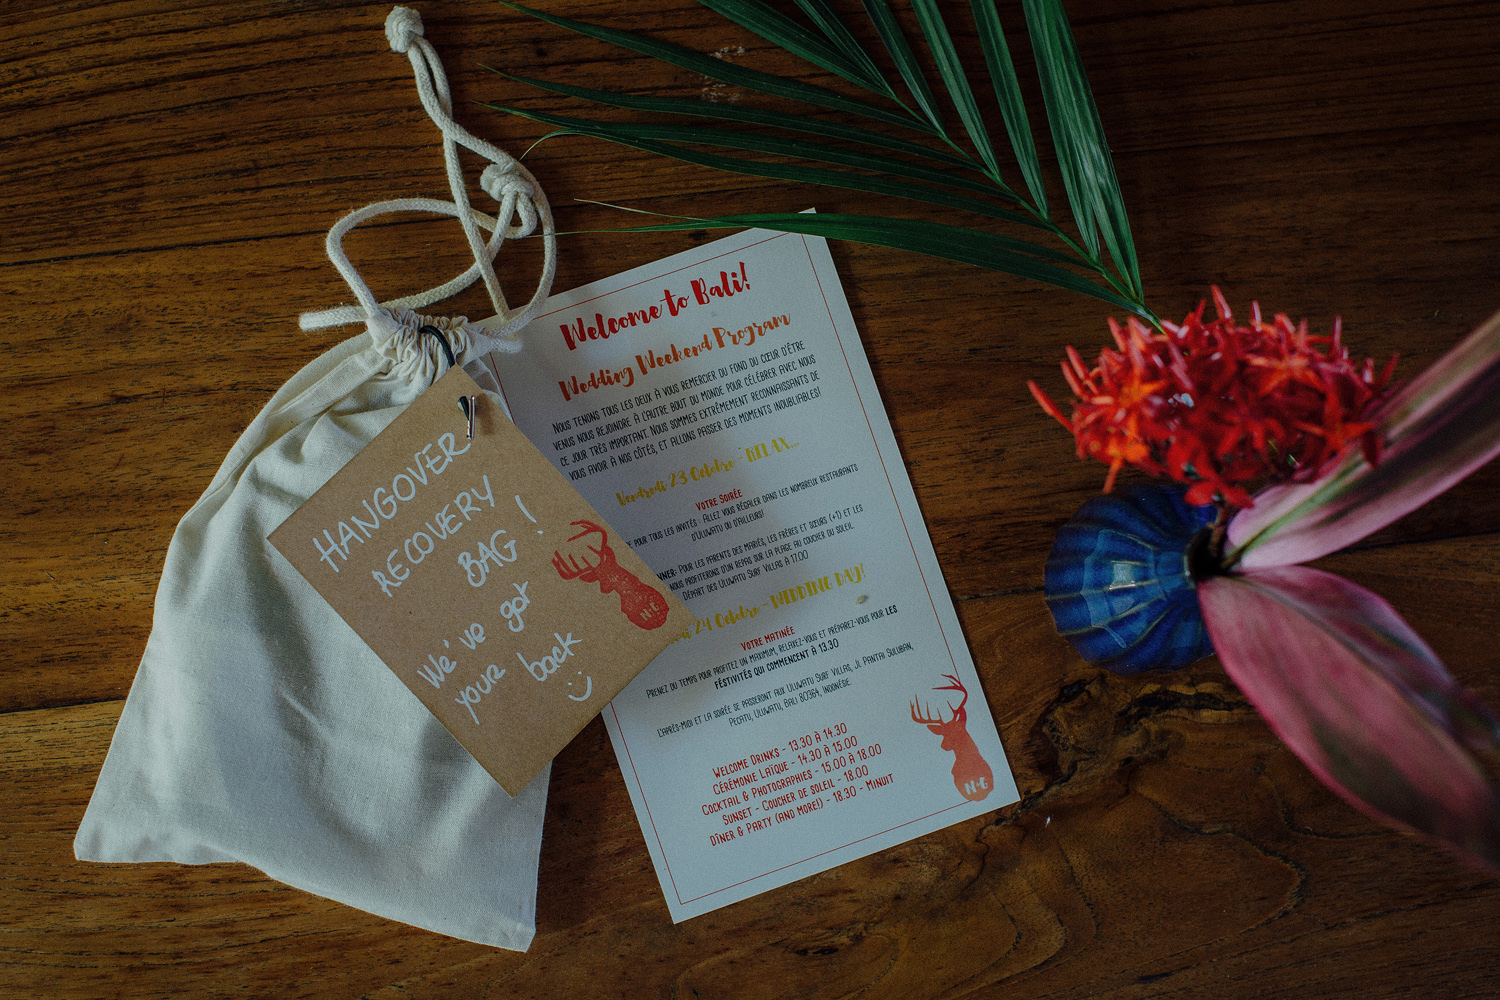 HANGOVER
RECOVERY
BAG !
We've got
your back
N+G
Welcome to Bali!
Wedding Weekend Program
Nous tenons tous les deux à vous remercier du fond du cœur d'être
venus nous rejoindre à l'autre bout du monde pour célébrer avec nous
ce jour très important. Nous sommes extrêmement reconnaissants de
vous avoir à nos côtés, et allons passer des moments inoubliables!
Vendredi 23 Octobre - RELAX...
Votre soirée
pour tous les invités : Allez vous régaler dans les nombreux restaurants
d'Uluwatu ou d'ailleurs!
Pour les parents des mariés, les frères et sœurs (+1) et les
nous profiterons d'un repas sur la plage au coucher du soleil.
Départ des Uluwatu Surf Villas à 17.00
24 Octobre - WEDDING DAY!
Votre matinée
Prenez du temps pour profitez un maximum, relaxez-vous et préparez-vous pour les
féstivités qui commencent à 13.30
L'après-midi et la soirée se passeront aux Uluwatu Surf Villas, Jl Pantai Suluban,
Pecatu, Uluwatu, Bali 80364, Indonésie.
Welcome Drinks - 13.30 à 14.30
Cérémonie Laïque - 14.30 à 15.00
Cocktail & Photographies - 15.00 à 18.00
Sunset - Coucher de soleil - 18.00
Dîner & Party (and more!) - 18.30 - Minuit
N+G